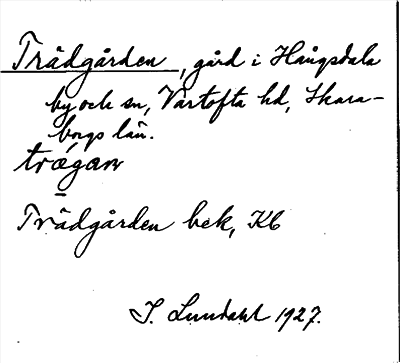 Trädgården, gård i Hångsdala
by och sn, Vartofta hd, Skara-
borgs län.
trǻgaɴ
Trädgården bek, Kb
I. Lundahl 1927.